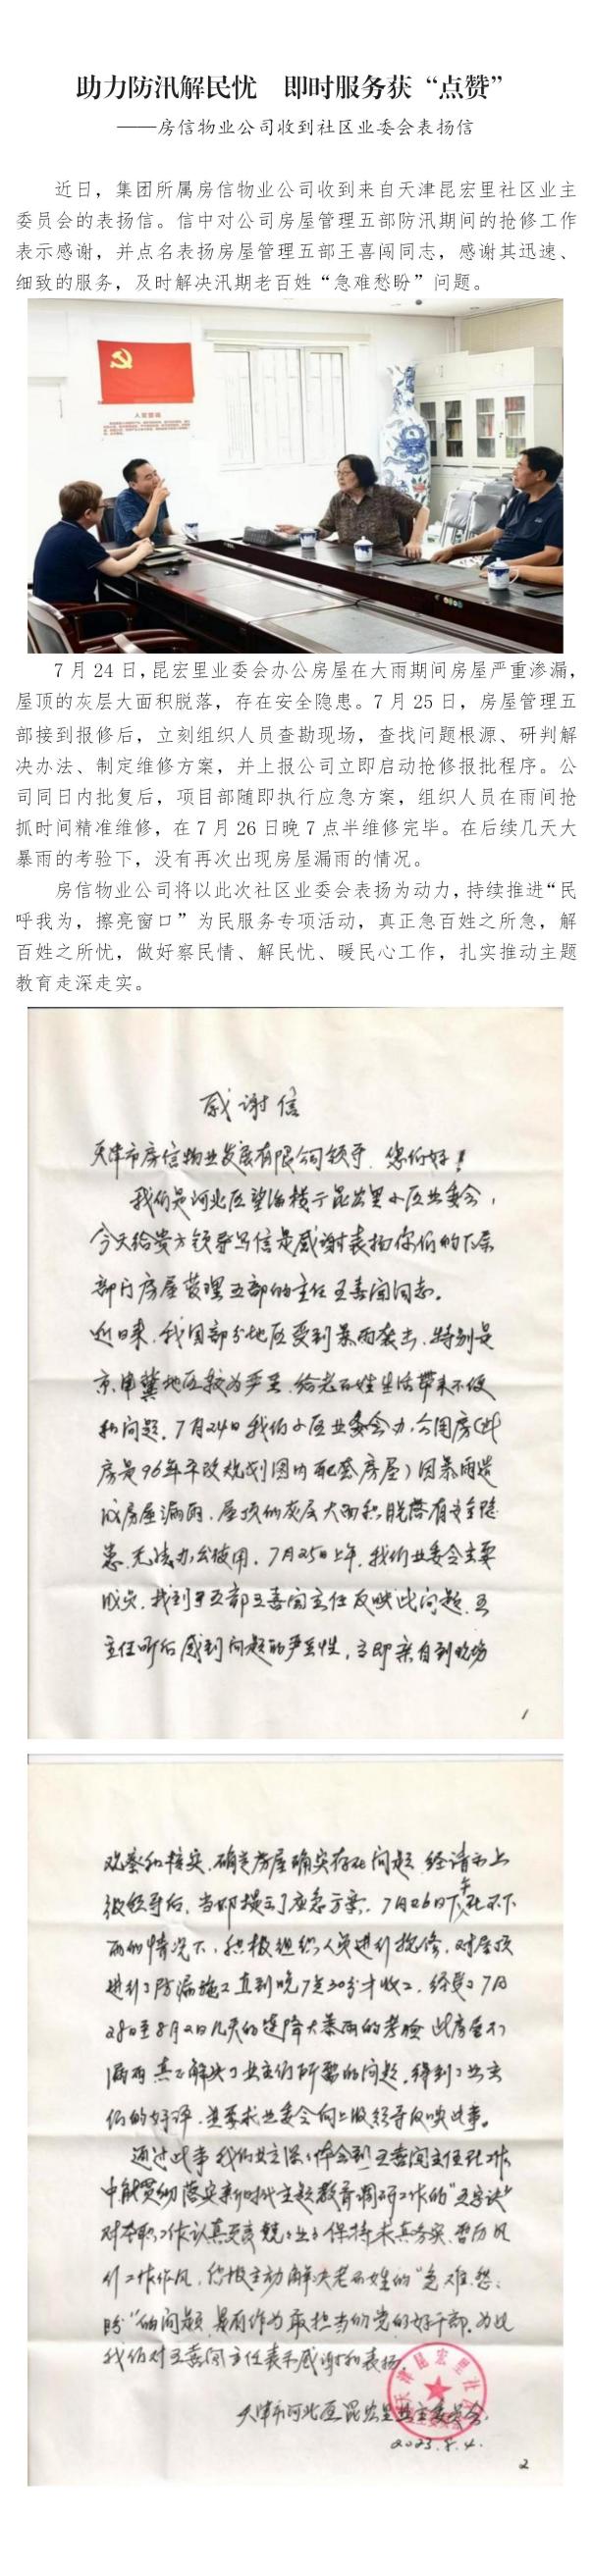 助力防汛解民忧　即时服务获“点赞”
——房信物业公司收到社区业委会表扬信
近日，集团所属房信物业公司收到来自天津昆宏里社区业主
委员会的表扬信。信中对公司房屋管理五部防汛期间的抢修工作
表示感谢，并点名表扬房屋管理五部王喜闯同志，感谢其迅速、
细致的服务，及时解决汛期老百姓“急难愁盼”问题。
7月24日，昆宏里业委会办公房屋在大雨期间房屋严重渗漏，
屋顶的灰层大面积脱落，存在安全隐患。7月25日，房屋管理五
部接到报修后，立刻组织人员查勘现场，查找问题根源、研判解
决办法、制定维修方案，并上报公司立即启动抢修报批程序。公
司同日内批复后，项目部随即执行应急方案，组织人员在雨间抢
抓时间精准维修，在7月26日晚7点半维修完毕。在后续几天大
暴雨的考验下，没有再次出现房屋漏雨的情况。
房信物业公司将以此次社区业委会表扬为动力，持续推进“民
呼我为，擦亮窗口”为民服务专项活动，真正急百姓之所急，解
百姓之所忧，做好察民情、解民忧、暖民心工作，扎实推动主题
教育走深走实。
感谢信
天津市房信物业发展有限公司领导，您们好！
我们是河北区望海楼于昆宏里小区业委会，
今天给贵方领导写信是感谢表扬你们的下层
部门房屋管理五部的主任王喜闯同志。
近日来，我国部分地区受到暴雨袭击，特别是
京津冀地区较为严重，给老百姓生活带来不便
和问题。7月24日我们小区业委会办公用房（此
房是96年平改规划图内配套房屋）因暴雨造
成房屋漏雨，屋顶的灰层大面积脱落有安全隐
患，无法办公使用。7月25日上午，我们业委会主要
成员，找到了五部王喜闯主任反映此问题，王
主任听后感到问题的严重性，立即亲自到现场
1
观察和核实，确定房屋确实存在问题，经请示上
级领导后，当即提了应急方案。7月26日下午在不下
雨的情况下，积极组织人员进行抢修，对屋顶
进行了防漏施工直到晚7点30分才收工，经受了7月
28日至8月2日几天的连降大暴雨的考验此房屋不
漏雨真正解决了业主们所需的问题，得到了业主
们的好评，并要求业委会向上级领导反映此事。
通过此事我们业主深深体会到王喜闯主任在工作
中能贯彻落实新时代主题教育调研工作的“五字诀”
对本职工作认真负责兢兢业业保持求真务实、雷厉风
行工作作风，积极主动解决老百姓的“急、难、愁、
盼”的问题，是有作为敢担当的党的好干部，为此
我们对王喜闯主任表示感谢和表扬。
天津市河北区昆宏里业主委员会
2023.8.4.
2